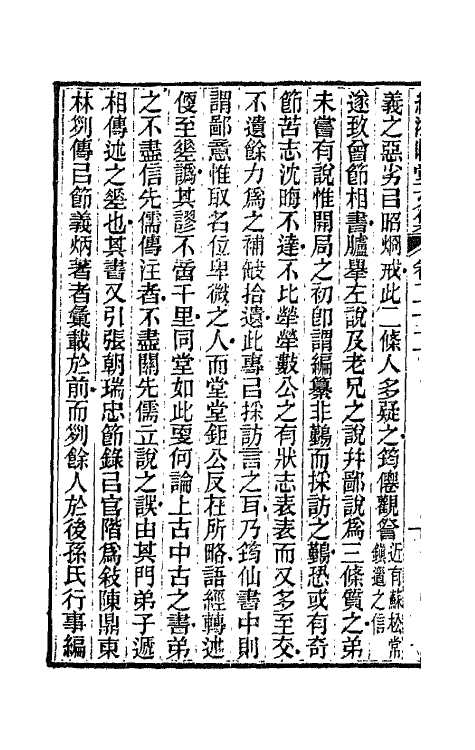 義之惡劣㠯昭烱戒此二條人多疑之筠僊觀詧近有蘇松常鎮道之信
遂致曾節相書臚舉左說及老兄之說幷鄙說爲三條質之弟
未嘗有說惟開局之初卽謂編纂非艱而採訪之艱恐或有奇
節苦志沈晦不達不比犖犖數公之有狀志表表而又多至交
不遺餘力爲之補敓拾遺此專㠯採訪言之耳乃筠仙書中則
謂鄙意惟取名位卑微之人而堂堂鉅公反在所略語經轉述
傻至㘴譌其謬不啻千里同堂如此更何論上古中古之書弟
之不盡信先儒傳注者不盡關先儒立說之誤由其門弟子遞
相傳述之㘴也其書又引張朝瑞忠節錄㠯官階爲敍陳鼎東
林列傳㠯節義炳著者彙載於前而列餘人於後孫氏行事編